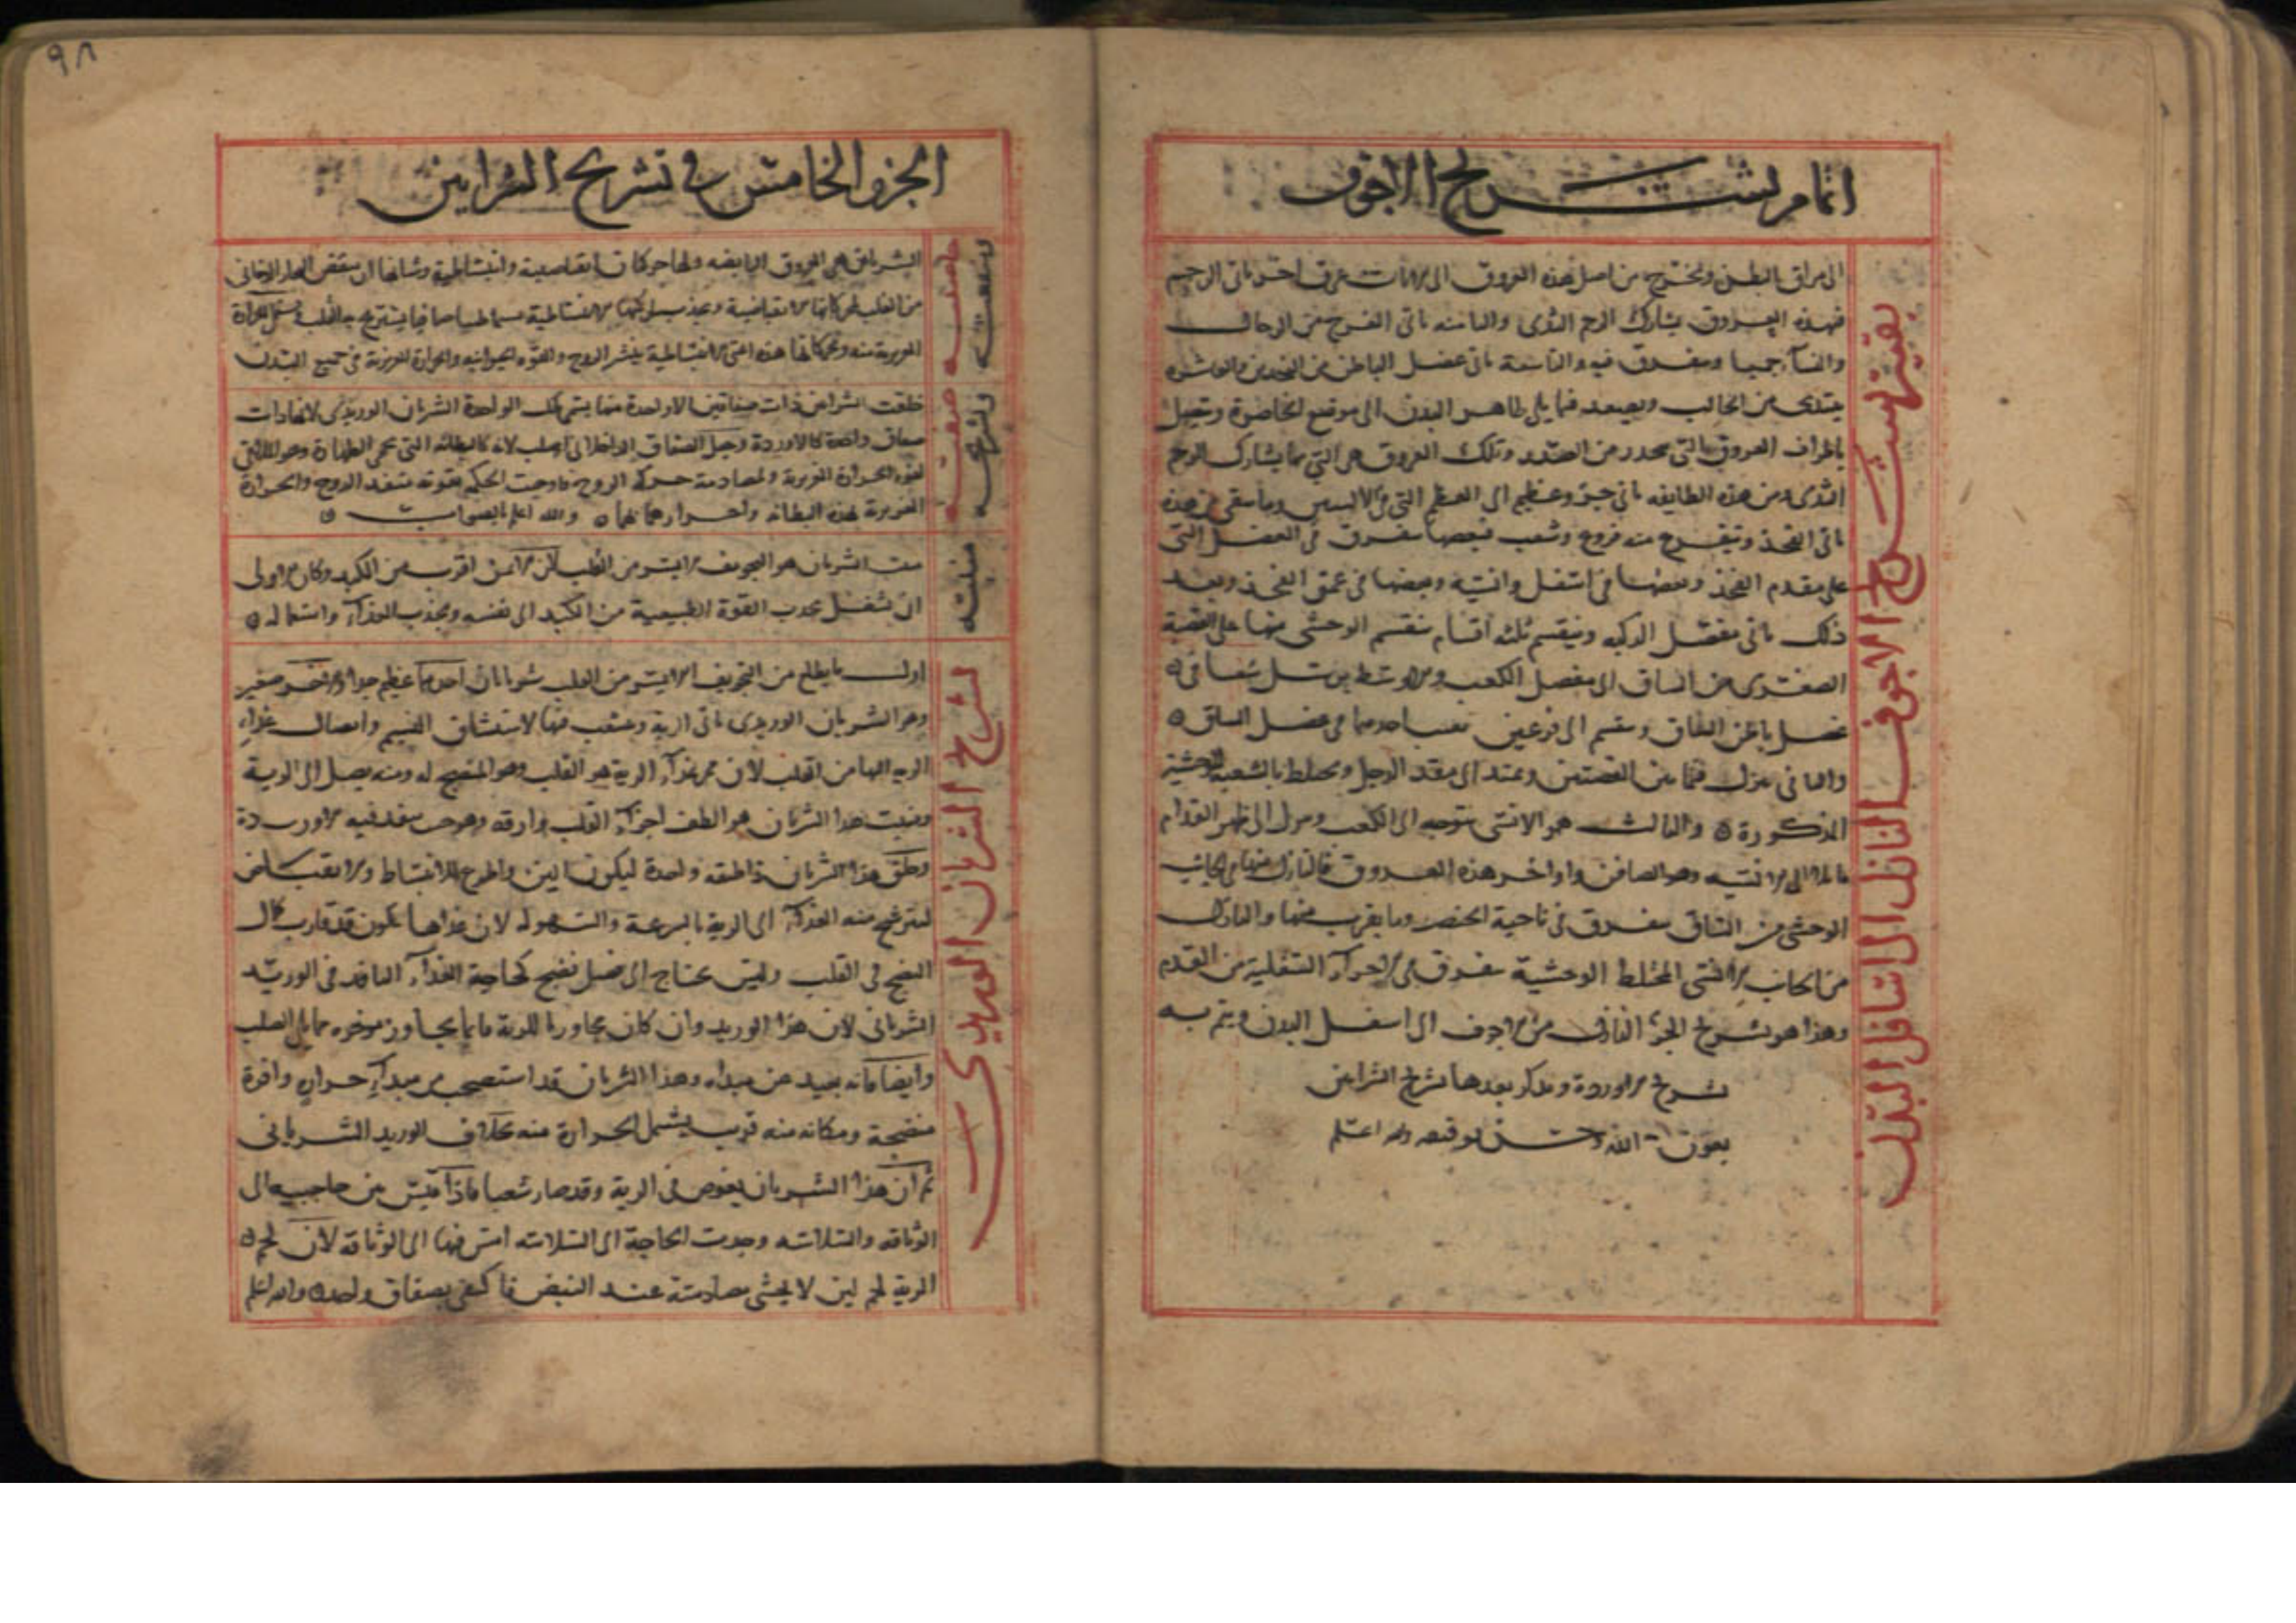 اتمام تشريح الاجوف
بقية تشريح الاجوف النازل الى اسافل البدن
الى مراق البطن ويخرج من اصل هذه العروق الى عرق اخر ياتى الرحم
فهذه العروق يشارك الرحم الثدى والثامنه ياتى الفرج من الرجال
والنسآء جميعا ويتفرق فيه والتاسعة ياتى عضل الباطن من الفخذين والعاشره
يبتدى من الحالب ويصعد فيما يلى ظاهر البدن الى موضع الخاصرة ويتصل
باطراف العروق التى ينحدر من الصدر وتلك العروق هى التى بها يشارك الرحم
الثدى ومن هذه الطايفه ياتى جزؤ عظيم الى العضل التى فى وما يبقى من هذه
ياتى الفخذ ويتفرع منه فروع وشعب فبعضها يتفرق فى العضل التى
على مقدم الفخذ وبعضها فى اسفل وانسيه وبعضها فى عمق الفخذ وبعد
ذلك ياتى مفصل الركبه وينقسم ثلثه اقسام ينقسم الوحشى منها على القصبة
الصغرى من الساق الى مفصل الكعب والاوسط يرسل شعبا فى
عضل باطن الساق وينقسم الى فرعين يغيب احدهما فى عضل الساق
والثانى ينزل فيما بين القصبتين ويمتد الى مقدم الرجل ويختلط بالشعبة الوحشية
المذكورة والثالث هو الانسى يتوجه الى الكعب وينزل الى ظهر القدم
مائلا الى الانسيه وهو الصافن واواخر هذه العروق فالنازل منها فى الجانب
الوحشى من الساق يتفرق فى ناحية الخنصر وما يقرب منها والنازل
من الجانب الانسى المختلط الوحشية يتفرق فى الاجزآء السفلية من القدم
وهذا هو تشريح الجزء النازل من الاجوف الى اسفل البدن ويتم به
تشريح الاوردة ونذكر بعدها تشريح الشرايين
بعون الله وحسن توفيقه والله اعلم
٩٨
الجزو الخامس فى تشريح الشرايين
الشرايين هى العروق النابضه ولها حركات انقباضية وانبساطية وشانها ان ينفض البخار الدخانى
من القلب بحركاتها الانقباضية ويجذب بحركتها الانبساطية نسيما طيبا صافيا يستريح به القلب
الغريزية منه وبحركاتها هذه اعنى الانبساطية ينتشر الروح والقوه الحيوانيه والحرارة الغريزية فى جميع البدن
خلقت الشرايين ذات صفاقين الا واحدة منها يسمى تلك الواحدة الشريان الوريدى لانها ذات
صفاق واحدة كالاوردة وجعل الصفاق الداخلانى اصلب لانه كالبطانه التى تحمى الظهارة وهو الملاقى
لقوه الحرارة الغريزية ولمصادمة حركة الروح فاوجبت الحكم تقوية منفذ الروح والحرارة
الغريزية بهذه البطانه والله اعلم بالصواب
منبته
منبت الشريان هو التجويف الايسر من القلب لان الايمن اقرب من الكبد وكان الاولى
ان يشغل بجذب القوة الطبيعية من الكبد الى نفسه وبجذب الغذآء واستعماله
تشريح الشريان الوريدى
اول ما يطلع من التجويف الايسر من القلب شريانان احدهما عظيم جدا والاخر صغير
وهو الشريان الوريدى ياتى الرية ويتشعب فيها لاستنشاق النسيم وايصال غذاء
الرية اليها من القلب لان ممر غذآء الرية هو القلب وهو المنضج له ومنه يصل الى الرية
ومنبت هذا الشريان هو الطف اجزآء القلب وارقه وهو حيث ينفذ فيه الاوردة
وخلق هذا الشريان ذا طبقه واحدة ليكون الين واطوع للانبساط والانقباض
ليترشح منه الغذآء الى الرية بالسرعة والسهوله لان غذاها يكون قد قارب كمال
النضج فى القلب وليس يحتاج الى فضل نضج كحاجة الغذآء النافذ فى الوريد
الشريانى لان هذا الوريد وان كان مجاورا للرية فانما يجاوز موخره مما يلى الصلب
وايضا فانه بعيد عن مبداه وهذا الشريان قد استصحب من مبدآء حرارة وافرة
منضجة ومكانه منه قريب يشمل الحرارة منه بخلاف الوريد الشريانى
ثم ان هذا الشريان يغوص فى الرية وقد صار شعبا فاذا قيس بين حاجيه الى
الوثاقه والسلاسه وجدت الحاجة الى السلاسه امس منها الى الوثاقه لان لحم
الرية لحم لين لا يخشى مصادمته عند النبض فاكتفى بصفاق واحد والله اعلم